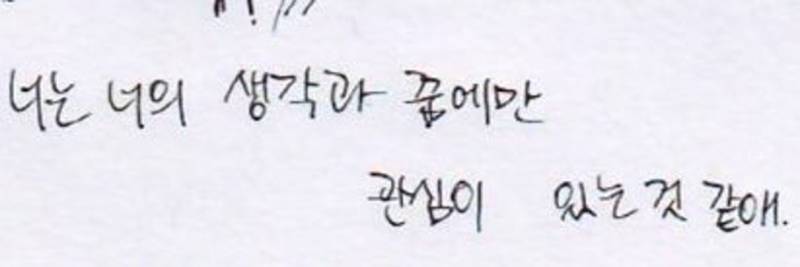 너는 너의 생각과 꿈에만
관심이 있는 것 같애.